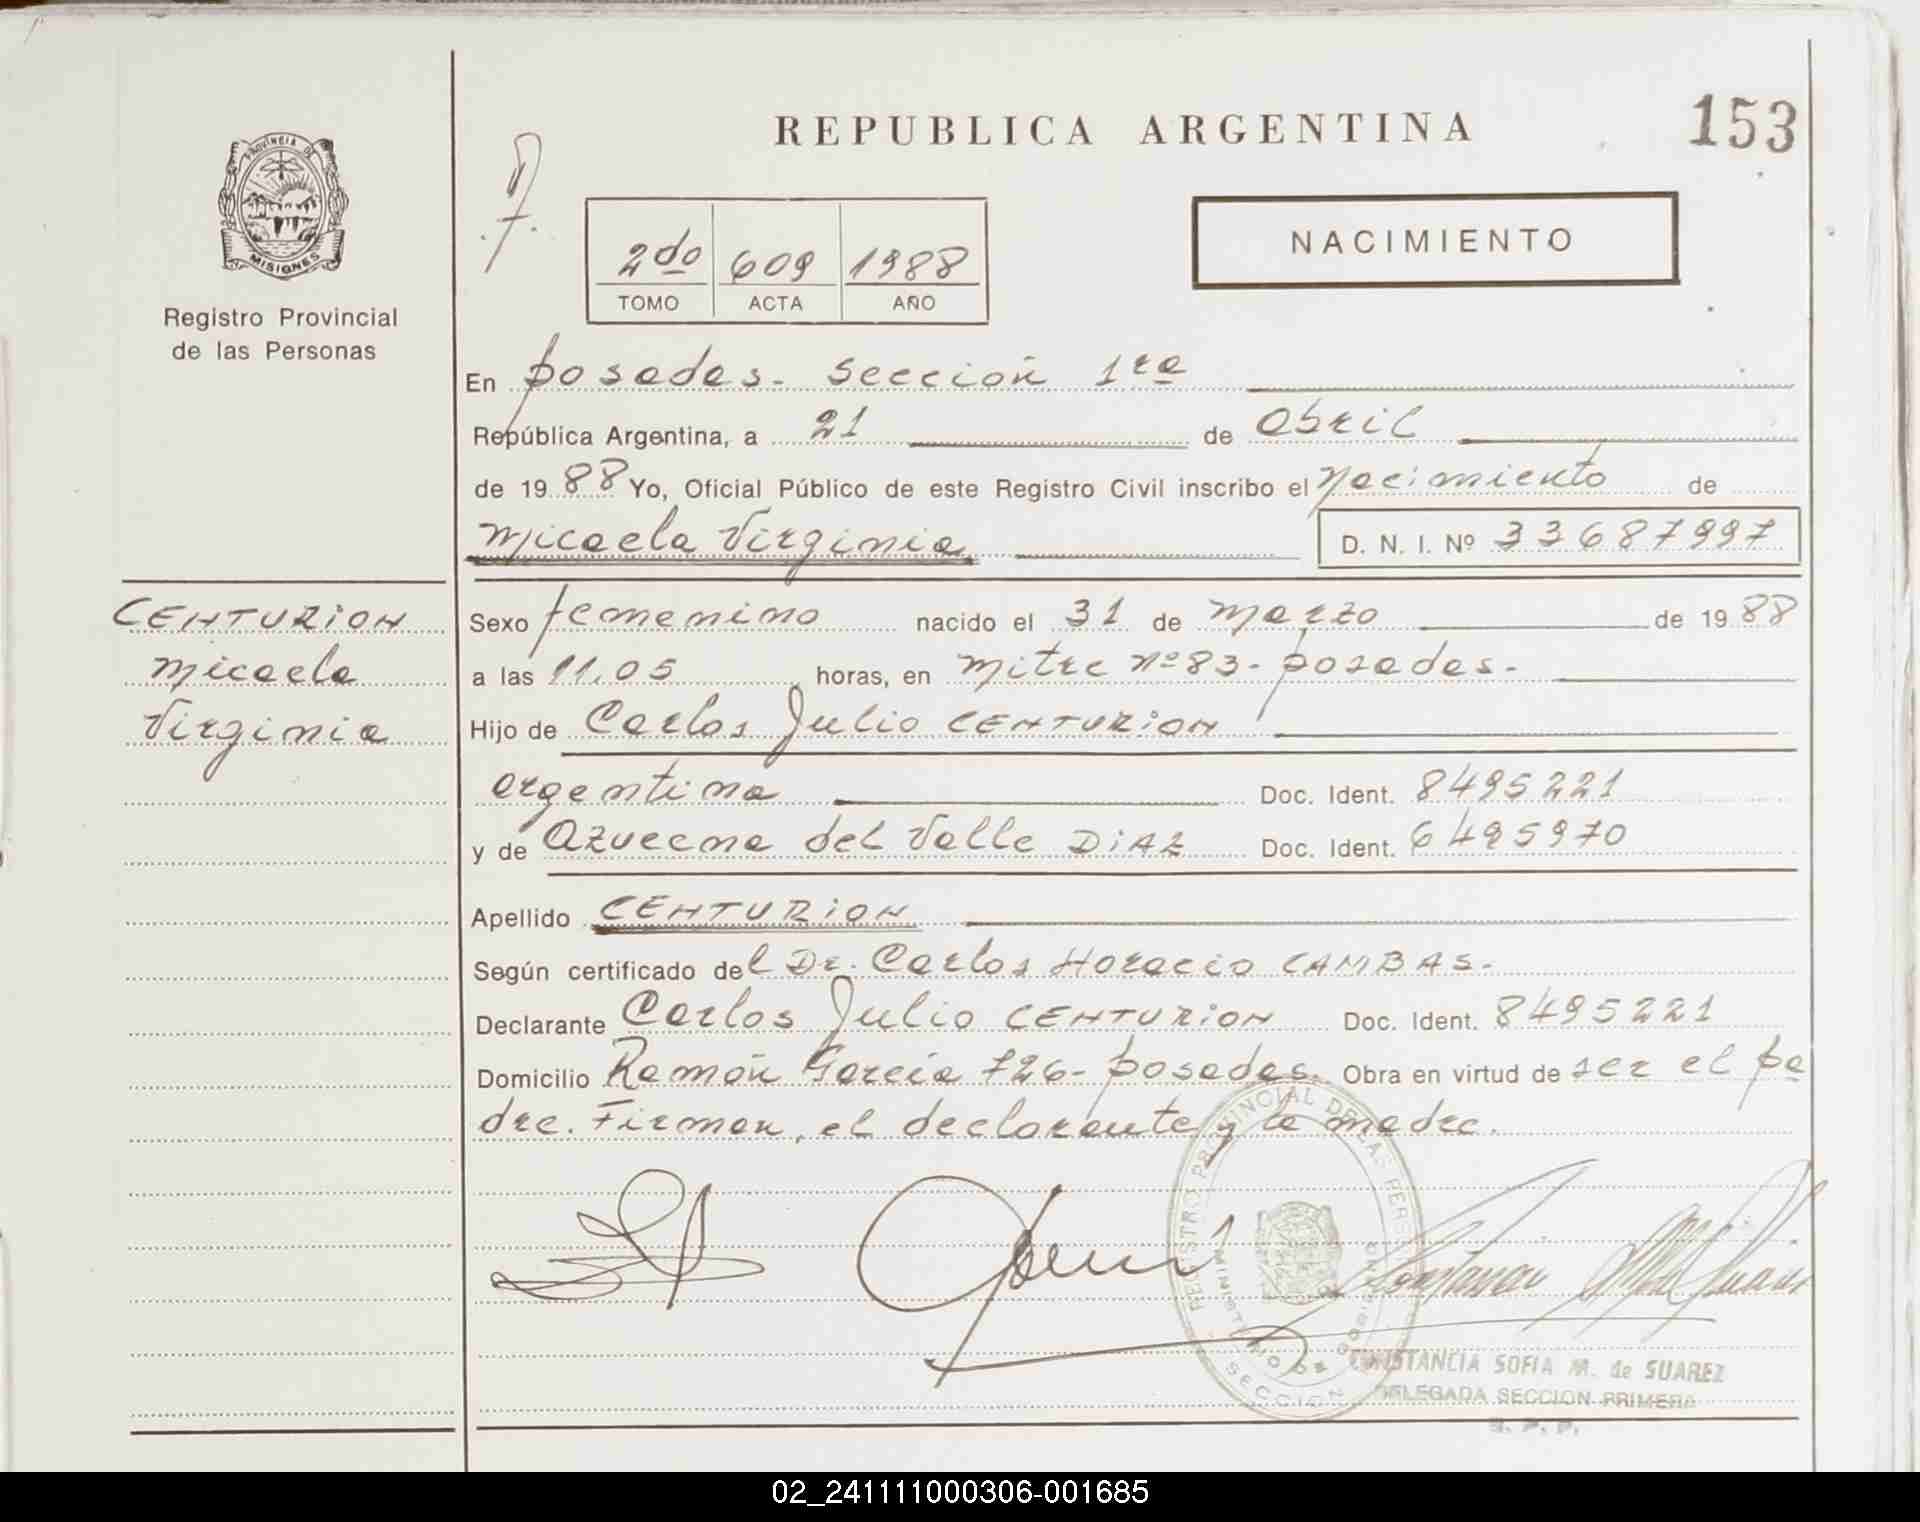 REPUBLICA ARGENTINA
153
PROVINCIA DE
MISIONES
Registro Provincial
de las Personas
2do 609 1988
TOMO ACTA AÑO
NACIMIENTO
En Posadas - Sección 1ra
República Argentina, a 21 de abril
de 1988 Yo, Oficial Público de este Registro Civil inscribo el Nacimiento de
Micaela Virginia D. N. I. Nº 33687997
CENTURION
Micaela
Virginia
Sexo femenino nacido el 31 de Marzo de 1988
a las 11,05 horas, en Mitre Nº 83 - Posadas -
Hijo de Carlos Julio CENTURION
argentina Doc. Ident. 8495221
y de Azucena del Valle DIAZ Doc. Ident. 6495970
Apellido CENTURION
Según certificado del Dr. Carlos Horacio CAMBAS -
Declarante Carlos Julio CENTURION Doc. Ident. 8495221
Domicilio Ramón García 726 - Posadas. Obra en virtud de ser el pa
dre. Firman, el declarante y la madre.
REGISTRO PROVINCIAL DE LAS PERS
MINISTERIO DE GOBIERNO
SECCION
CONSTANCIA SOFIA M. de SUAREZ
DELEGADA SECCION PRIMERA
R. P. P.
02_241111000306-001685